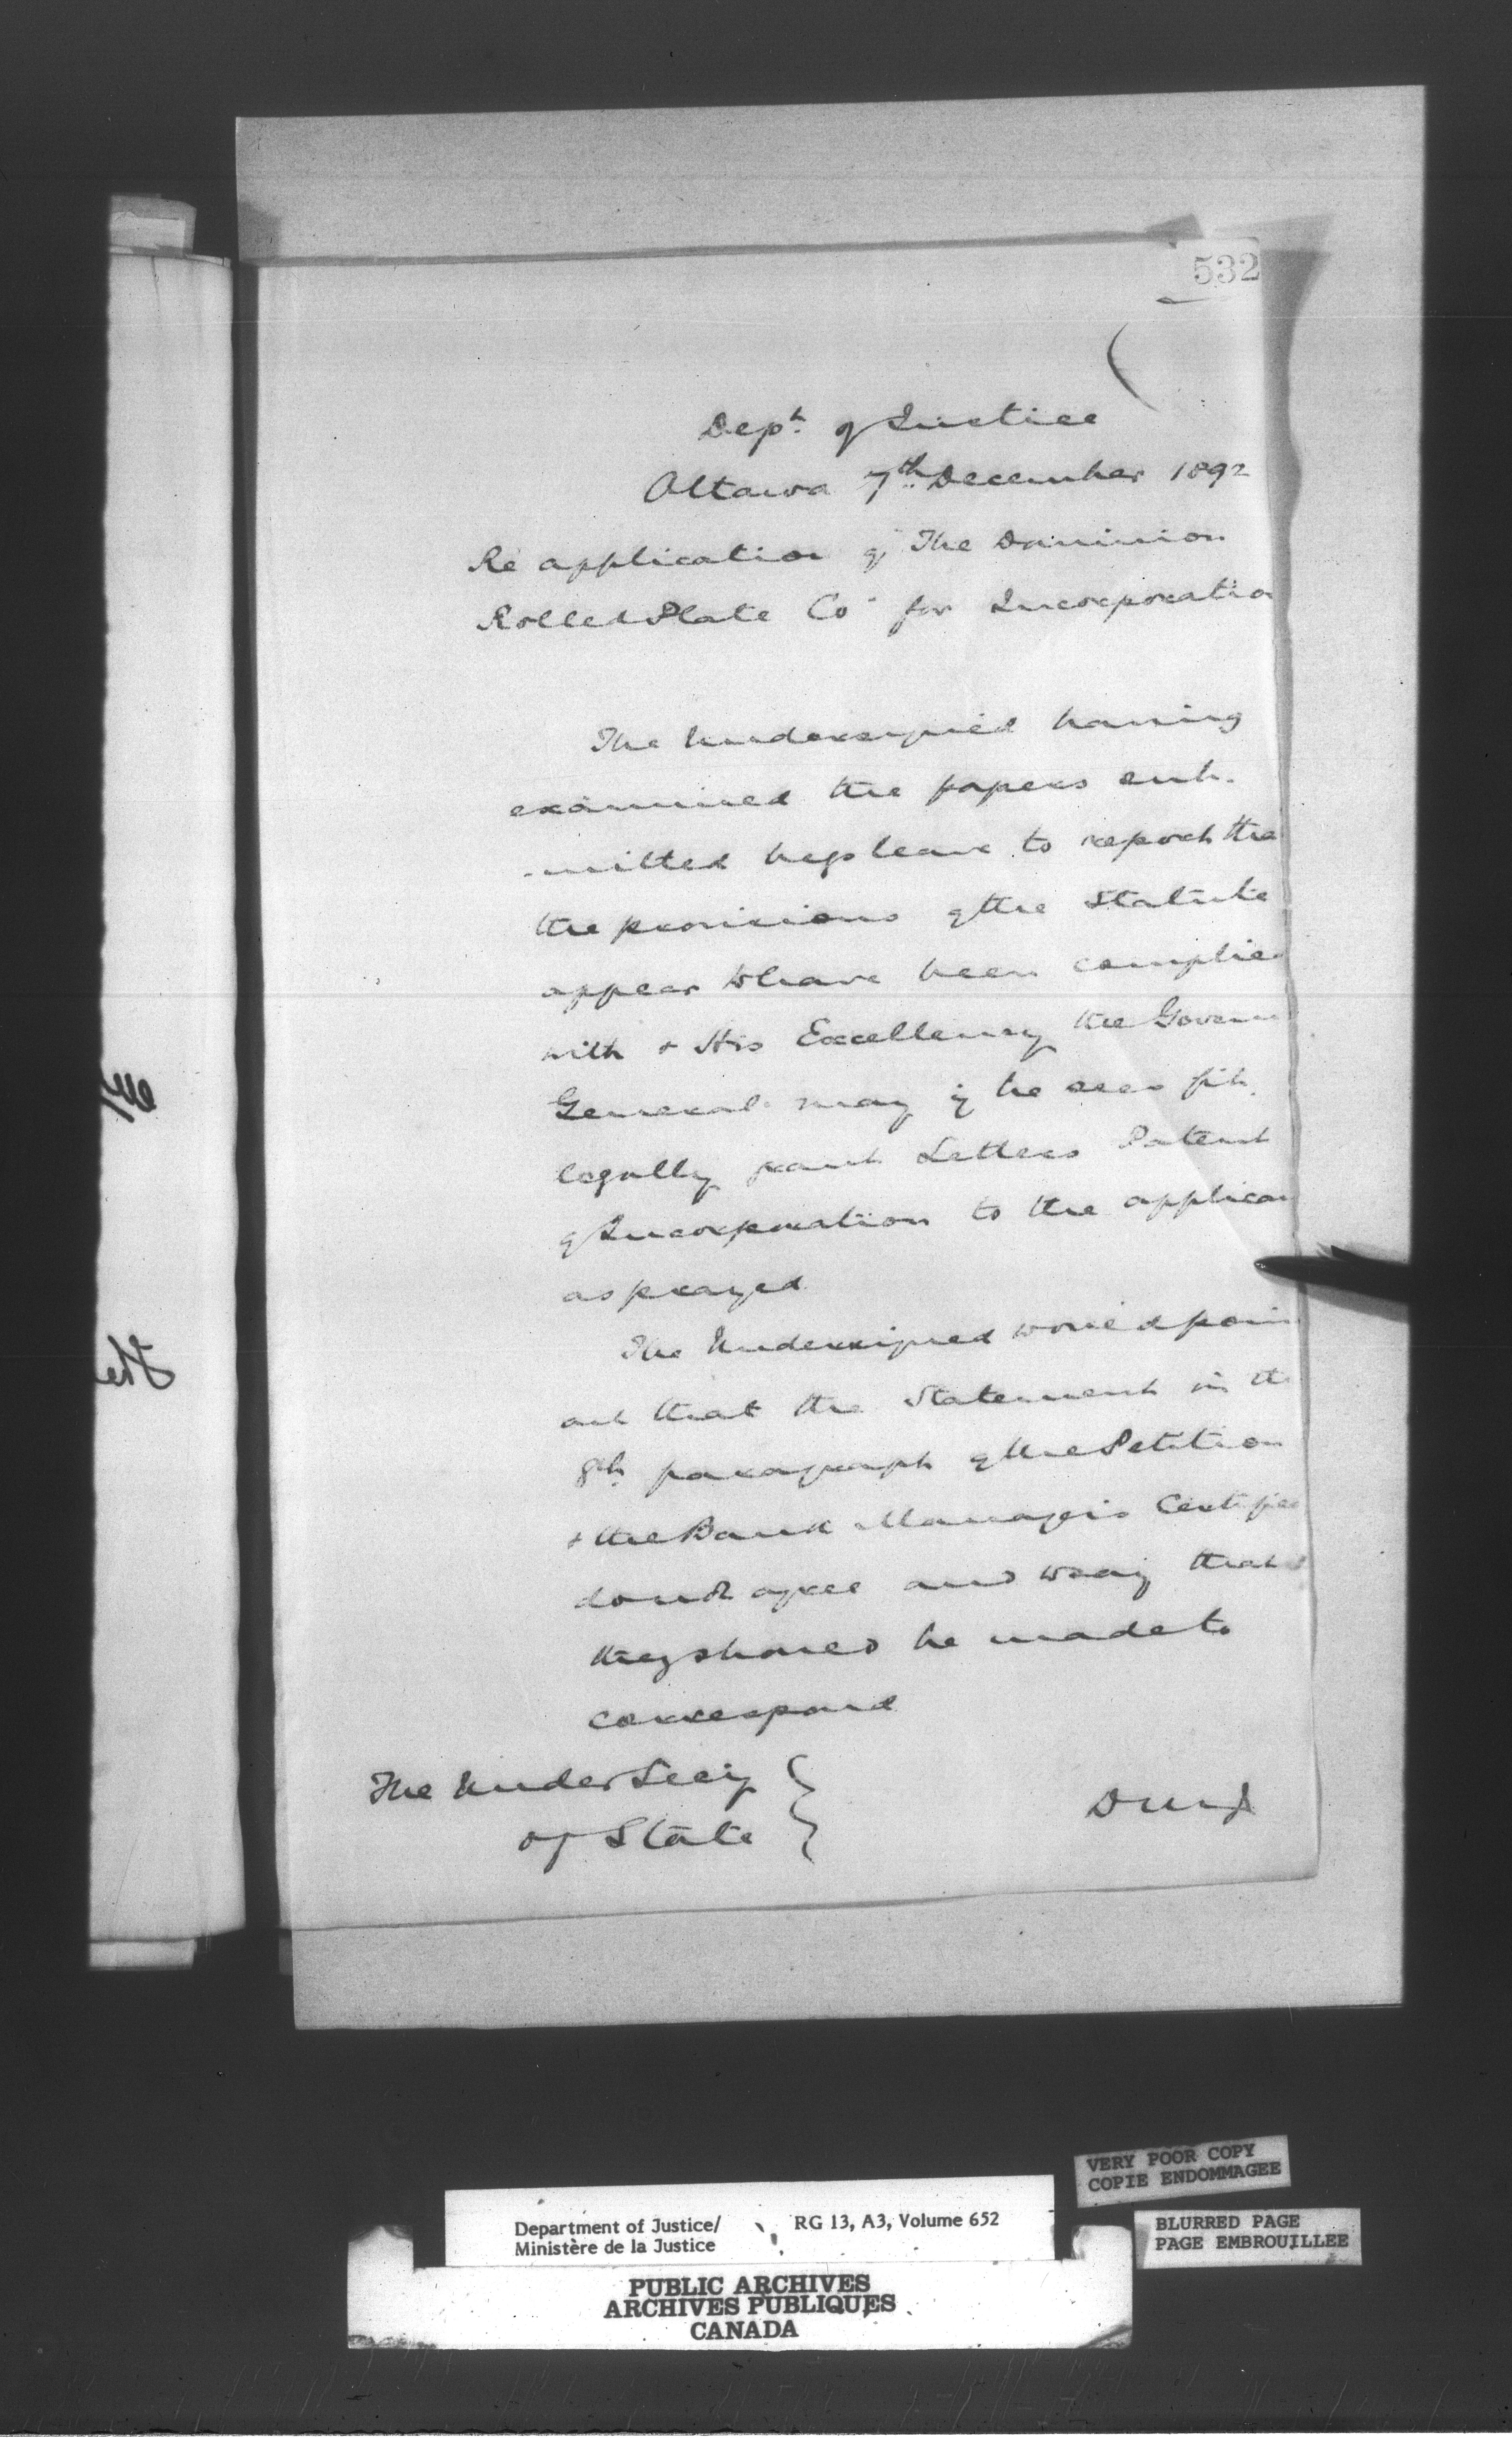 532
Dept. of Justice
Ottawa 7th December 1892
Re application of The Dominion
Rolled Plate Co for Incorporatio
The Undersigned having
examined the papers sub-
-mitted begs leave to report tha
the provisions of the Statute
appear to have been complie
with & His Excellency the Govern
General may if he sees fit
legally grant Letters Patent
of Incorporation to the applican
as prayed
The Undersigned would poin
out that the Statement in th
8th paragraph of the Petition
& the Bank Manager's Certific
do not agree and to say that
they should be made to
correspond
The Under Secy
of State
the
VERY POOR COPY
COPIE ENDOMMAGEE
BLURRED PAGE
PAGE EMBROUILLEE
Department of Justice/ RG 13, A3, Volume 652
Ministère de la Justice
PUBLIC ARCHIVES
ARCHIVES PUBLIQUES
CANADA